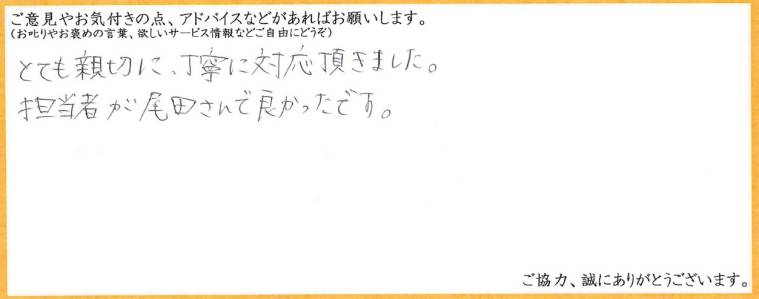 ご意見やお気付きの点、アドバイスなどがあればお願いします。
(お叱りやお褒めの言葉、欲しいサービス情報などご自由にどうぞ)
とても親切に、丁寧に対応頂きました。
担当者が尾田さんで良かったです。
ご協力、誠にありがとうございます。